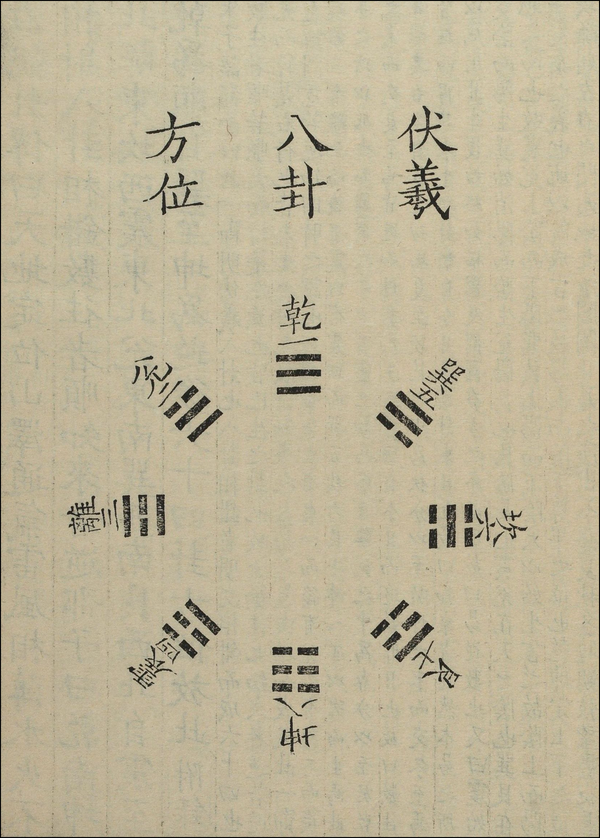 伏羲
八卦
方位
乾一
兌二
離三
震四
巽五
坎六
艮七
坤八